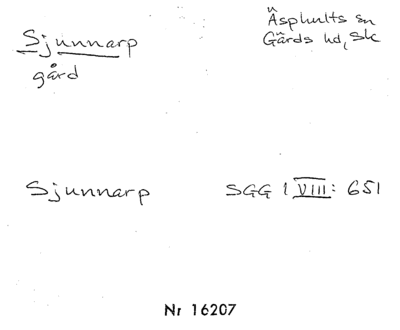 Sjunnarp
gård
Äsphults sn
Gärds hd, Sk
Sjunnarp
SGG 1 VIII: 651
Nr 16207